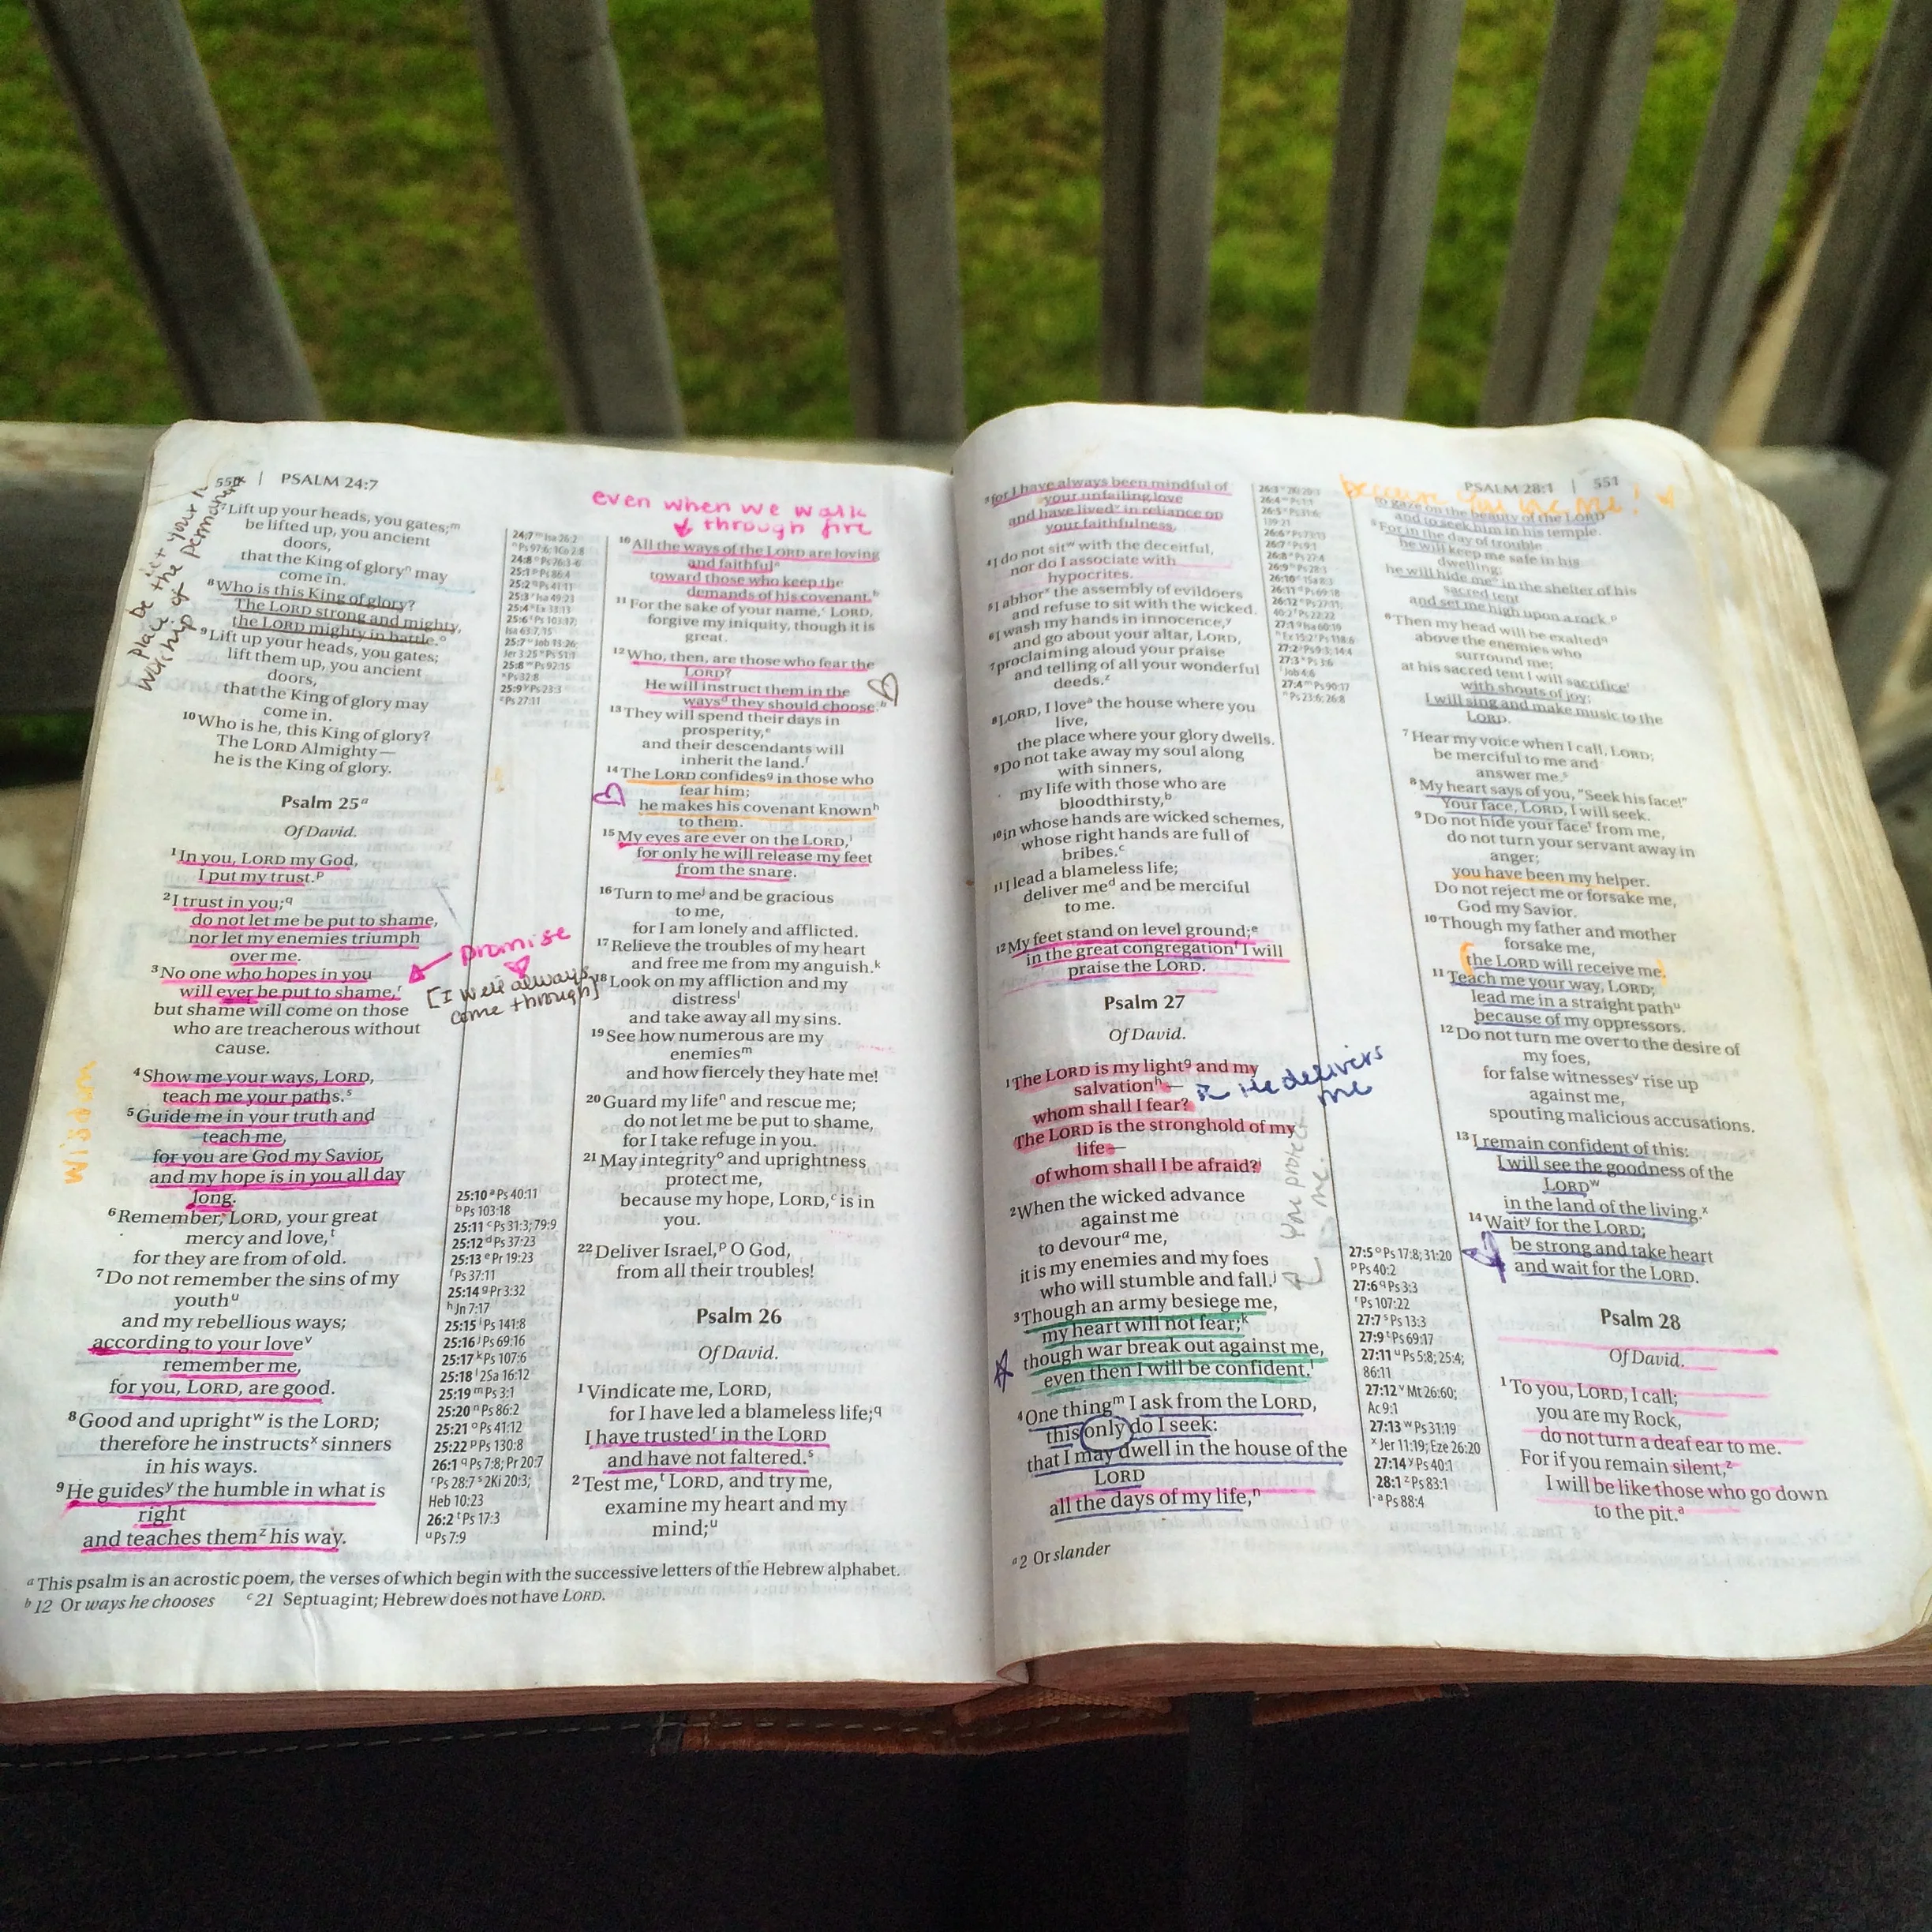 550 | PSALM 24:7
place be it your
worship of the permanent
⁷Lift up your heads, you gates;ᵐ
be lifted up, you ancient
doors,
that the King of gloryⁿ may
come in.
⁸Who is this King of glory?
The LORD strong and mighty,
the LORD mighty in battle.ᵒ
⁹Lift up your heads, you gates;
lift them up, you ancient
doors,
that the King of glory may
come in.
¹⁰Who is he, this King of glory?
The LORD Almighty—
he is the King of glory.
Psalm 25ᵃ
Of David.
¹In you, LORD my God,
I put my trust.ᵖ
²I trust in you;q
do not let me be put to shame,
nor let my enemies triumph
over me.
³No one who hopes in you
will ever be put to shame,ʳ
but shame will come on those
who are treacherous without
cause.
promise
[I will always
come through]
⁴Show me your ways, LORD,
teach me your paths.ˢ
⁵Guide me in your truth and
teach me,
for you are God my Savior,
and my hope is in you all day
long.
⁶Remember, LORD, your great
mercy and love,ᵗ
for they are from of old.
⁷Do not remember the sins of my
youthᵘ
and my rebellious ways;
according to your loveᵛ
remember me,
for you, LORD, are good.
⁸Good and uprightʷ is the LORD;
therefore he instructsˣ sinners
in his ways.
⁹He guidesʸ the humble in what is
right
and teaches themᶻ his way.
24:7 ᵐ Isa 26:2
ⁿ Ps 97:6; 1Co 2:8
24:8 ᵒ Ps 76:3-6
25:1 ᵖ Ps 86:4
25:2 q Ps 41:11
25:3 ʳ Isa 49:23
25:4 ˢ Ex 33:13
25:6 ᵗ Ps 103:17;
Isa 63:7, 15
25:7 ᵘ Job 13:26;
Jer 3:25 ᵛ Ps 51:1
25:8 ʷ Ps 92:15
ˣ Ps 32:8
25:9 ʸ Ps 23:3
ᶻ Ps 27:11
25:10 ᵃ Ps 40:11
ᵇ Ps 103:18
25:11 ᶜ Ps 31:3; 79:9
25:12 ᵈ Ps 37:23
25:13 ᵉ Pr 19:23
ᶠ Ps 37:11
25:14 ᵍ Pr 3:32
ʰ Jn 7:17
25:15 ⁱ Ps 141:8
25:16 ʲ Ps 69:16
25:17 ᵏ Ps 107:6
25:18 ˡ 2Sa 16:12
25:19 ᵐ Ps 3:1
25:20 ⁿ Ps 86:2
25:21 ᵒ Ps 41:12
25:22 ᵖ Ps 130:8
26:1 q Ps 7:8; Pr 20:7
ʳ Ps 28:7 ˢ 2Ki 20:3;
Heb 10:23
26:2 ᵗ Ps 17:3
ᵘ Ps 7:9
even when we walk
through fire
¹⁰All the ways of the LORD are loving
and faithfulᵃ
toward those who keep the
demands of his covenant.ᵇ
¹¹For the sake of your name,ᶜ LORD,
forgive my iniquity, though it is
great.
¹²Who, then, are those who fear the
LORD?
He will instruct them in the
waysᵈ they should choose.ᵇ
¹³They will spend their days in
prosperity,ᵉ
and their descendants will
inherit the land.ᶠ
¹⁴The LORD confidesᵍ in those who
fear him;
he makes his covenant knownʰ
to them.
¹⁵My eyes are ever on the LORD,ⁱ
for only he will release my feet
from the snare.
¹⁶Turn to meʲ and be gracious
to me,
for I am lonely and afflicted.
¹⁷Relieve the troubles of my heart
and free me from my anguish.ᵏ
¹⁸Look on my affliction and my
distressˡ
and take away all my sins.
¹⁹See how numerous are my
enemiesᵐ
and how fiercely they hate me!
²⁰Guard my lifeⁿ and rescue me;
do not let me be put to shame,
for I take refuge in you.
²¹May integrityᵒ and uprightness
protect me,
because my hope, LORD,ᶜ is in
you.
²²Deliver Israel,ᵖ O God,
from all their troubles!
Psalm 26
Of David.
¹Vindicate me, LORD,
for I have led a blameless life;q
I have trustedʳ in the LORD
and have not faltered.ˢ
²Test me,ᵗ LORD, and try me,
examine my heart and my
mind;ᵘ
ᵃ This psalm is an acrostic poem, the verses of which begin with the successive letters of the Hebrew alphabet.
ᵇ 12 Or ways he chooses ᶜ 21 Septuagint; Hebrew does not have LORD.
PSALM 28:1 | 551
³for I have always been mindful of
your unfailing love
and have livedᵛ in reliance on
your faithfulness.
⁴I do not sitʷ with the deceitful,
nor do I associate with
hypocrites.
⁵I abhorˣ the assembly of evildoers
and refuse to sit with the wicked.
⁶I wash my hands in innocence,ʸ
and go about your altar, LORD,
⁷proclaiming aloud your praise
and telling of all your wonderful
deeds.ᶻ
⁸LORD, I loveᵃ the house where you
live,
the place where your glory dwells.
⁹Do not take away my soul along
with sinners,
my life with those who are
bloodthirsty,ᵇ
¹⁰in whose hands are wicked schemes,
whose right hands are full of
bribes.ᶜ
¹¹I lead a blameless life;
deliver meᵈ and be merciful
to me.
¹²My feet stand on level ground;ᵉ
in the great congregationᶠ I will
praise the LORD.
Psalm 27
Of David.
¹The LORD is my lightᵍ and my
salvationʰ—
whom shall I fear?
The LORD is the stronghold of my
life—
of whom shall I be afraid?ⁱ
He delivers
me
you protect
me.
²When the wicked advance
against me
to devourᵃ me,
it is my enemies and my foes
who will stumble and fall.ʲ
³Though an army besiege me,
my heart will not fear;ᵏ
though war break out against me,
even then I will be confident.ˡ
⁴One thingᵐ I ask from the LORD,
this only do I seek:
that I may dwell in the house of the
LORD
all the days of my life,ⁿ
ᵃ 2 Or slander
26:6 ʸ Ps 73:13
26:7 ᶻ Ps 9:1
26:8 ᵃ Ps 27:4
26:9 ᵇ Ps 28:3
26:10 ᶜ 1Sa 8:3
26:11 ᵈ Ps 69:18
26:12 ᵉ Ps 27:11;
40:2 ᶠ Ps 22:22
27:1 ᵍ Isa 60:19
ʰ Ex 15:2 ⁱ Ps 118:6
27:2 ʲ Ps 9:3; 14:4
27:3 ᵏ Ps 3:6
ˡ Job 4:6
27:4 ᵐ Ps 90:17
ⁿ Ps 23:6; 26:8
27:5 ᵒ Ps 17:8; 31:20
ᵖ Ps 40:2
27:6 q Ps 3:3
ʳ Ps 107:22
27:7 ˢ Ps 13:3
27:9 ᵗ Ps 69:17
27:11 ᵘ Ps 5:8; 25:4;
86:11
27:12 ᵛ Mt 26:60;
Ac 9:1
27:13 ʷ Ps 31:19
ˣ Jer 11:19; Eze 26:20
27:14 ʸ Ps 40:1
28:1 ᶻ Ps 83:1
ᵃ Ps 88:4
because you love me!
to gaze on the beauty of the LORD
and to seek him in his temple.
⁵For in the day of trouble
he will keep me safe in his
dwelling;
he will hide meᵒ in the shelter of his
sacred tent
and set me high upon a rock.ᵖ
⁶Then my head will be exaltedq
above the enemies who
surround me;
at his sacred tent I will sacrificeʳ
with shouts of joy;
I will sing and make music to the
LORD.
⁷Hear my voice when I call, LORD;
be merciful to me and
answer me.ˢ
⁸My heart says of you, "Seek his face!"
Your face, LORD, I will seek.
⁹Do not hide your faceᵗ from me,
do not turn your servant away in
anger;
you have been my helper.
Do not reject me or forsake me,
God my Savior.
¹⁰Though my father and mother
forsake me,
the LORD will receive me.
¹¹Teach me your way, LORD;
lead me in a straight pathᵘ
because of my oppressors.
¹²Do not turn me over to the desire of
my foes,
for false witnessesᵛ rise up
against me,
spouting malicious accusations.
¹³I remain confident of this:
I will see the goodness of the
LORDʷ
in the land of the living.ˣ
¹⁴Waitʸ for the LORD;
be strong and take heart
and wait for the LORD.
Psalm 28
Of David.
¹To you, LORD, I call;
you are my Rock,
do not turn a deaf ear to me.
For if you remain silent,ᶻ
I will be like those who go down
to the pit.ᵃ